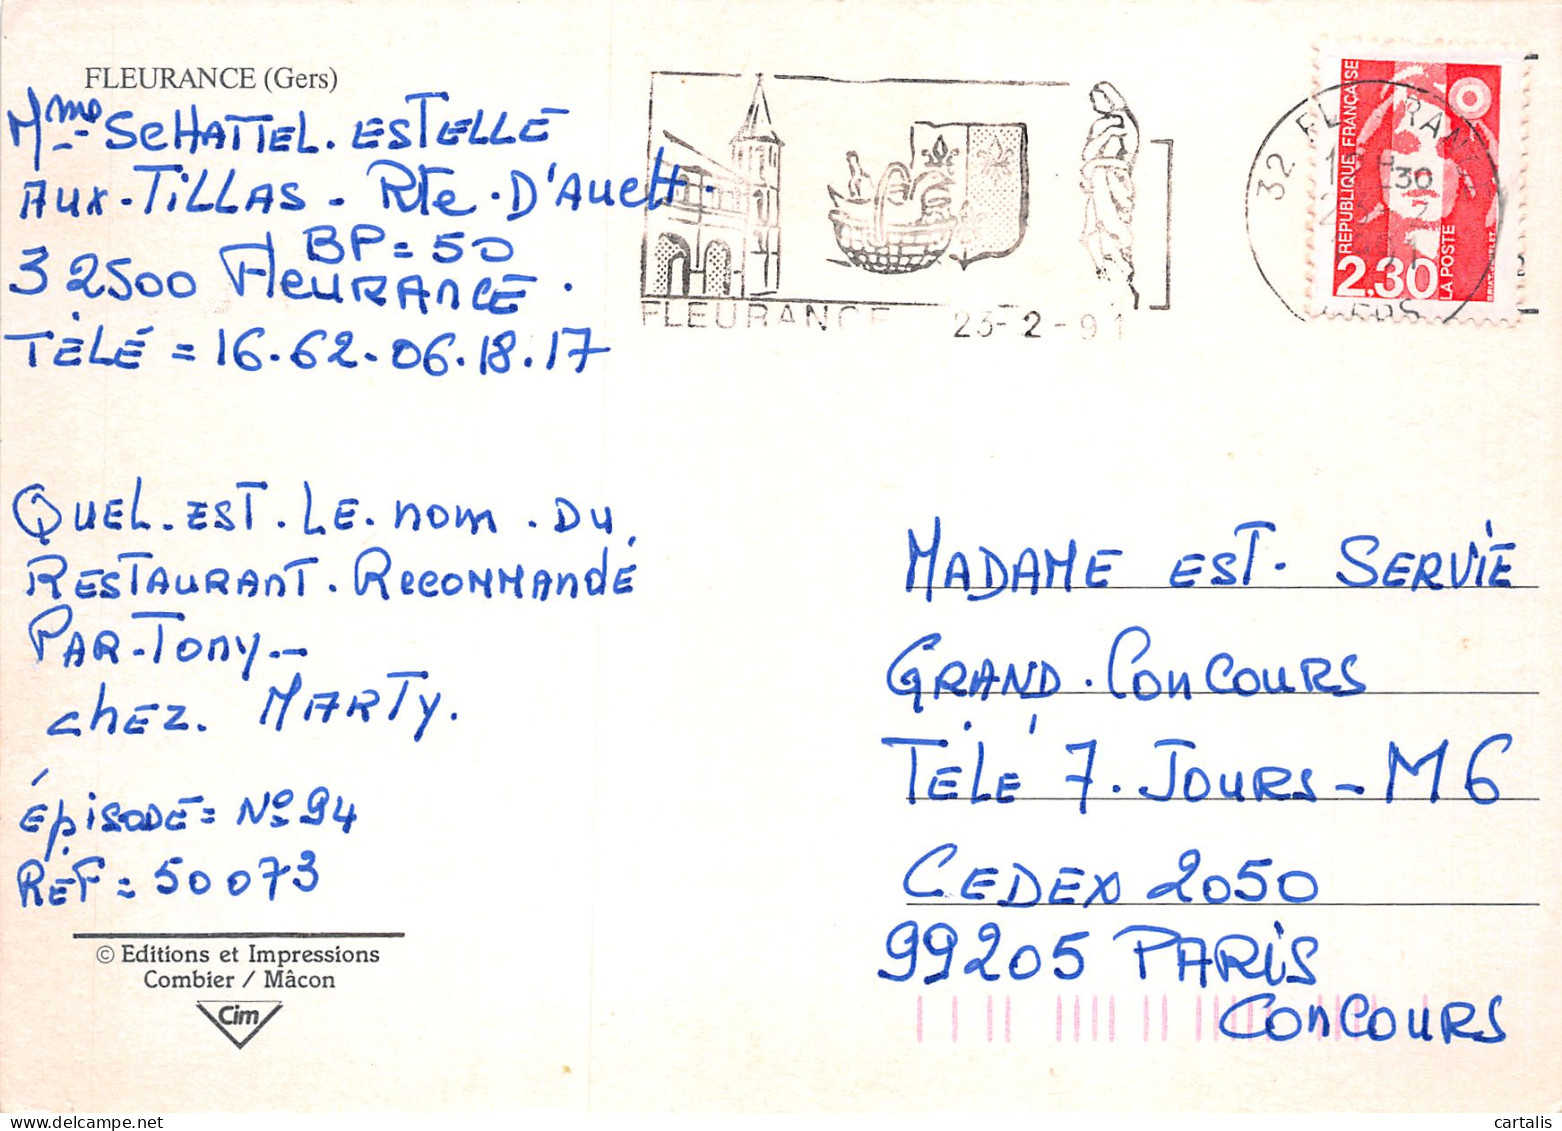 FLEURANCE (Gers)
Mme SCHATTEL. ESTELLE
AUX-TILLAS - Rte. D'AUCH.
BP = 50
32500 FLEURANCE.
TÉLÉ = 16-62-06.18.17
QUEL. EST. LE. nom. DU.
RESTAURANT. RECOMMANDÉ
PAR-TONY.-
CHEZ. MARTY.
ÉPISODE = No 94
RÉF = 50073
© Editions et Impressions
Combier / Mâcon
Cim
FLEURANCE 23-2-91
32 FL RAN
30
RÉPUBLIQUE FRANÇAISE
2.30
LA POSTE
MADAME EST. SERVIE
GRAND. CONCOURS
TÉLÉ 7. JOURS - M6
CEDEX 2050
99205 PARIS
CONCOURS
cartalis